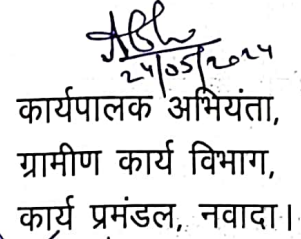 24/05/2024
कार्यपालक अभियंता,
ग्रामीण कार्य विभाग,
कार्य प्रमंडल, नवादा।